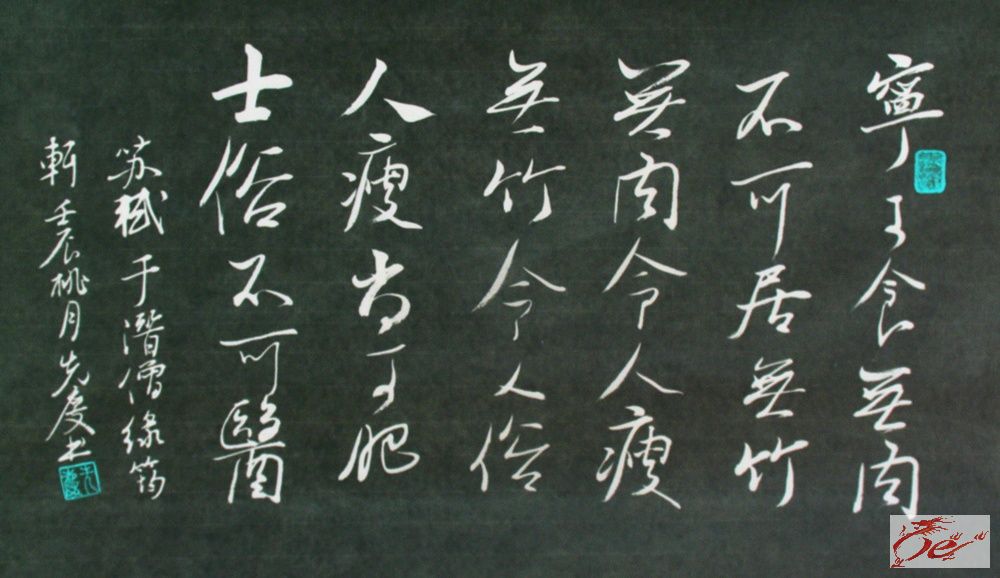 寧可食無肉
不可居無竹
無肉令人瘦
無竹令人俗
人瘦尚可肥
士俗不可醫
苏軾于潛僧綠筠
軒壬辰桃月先度书